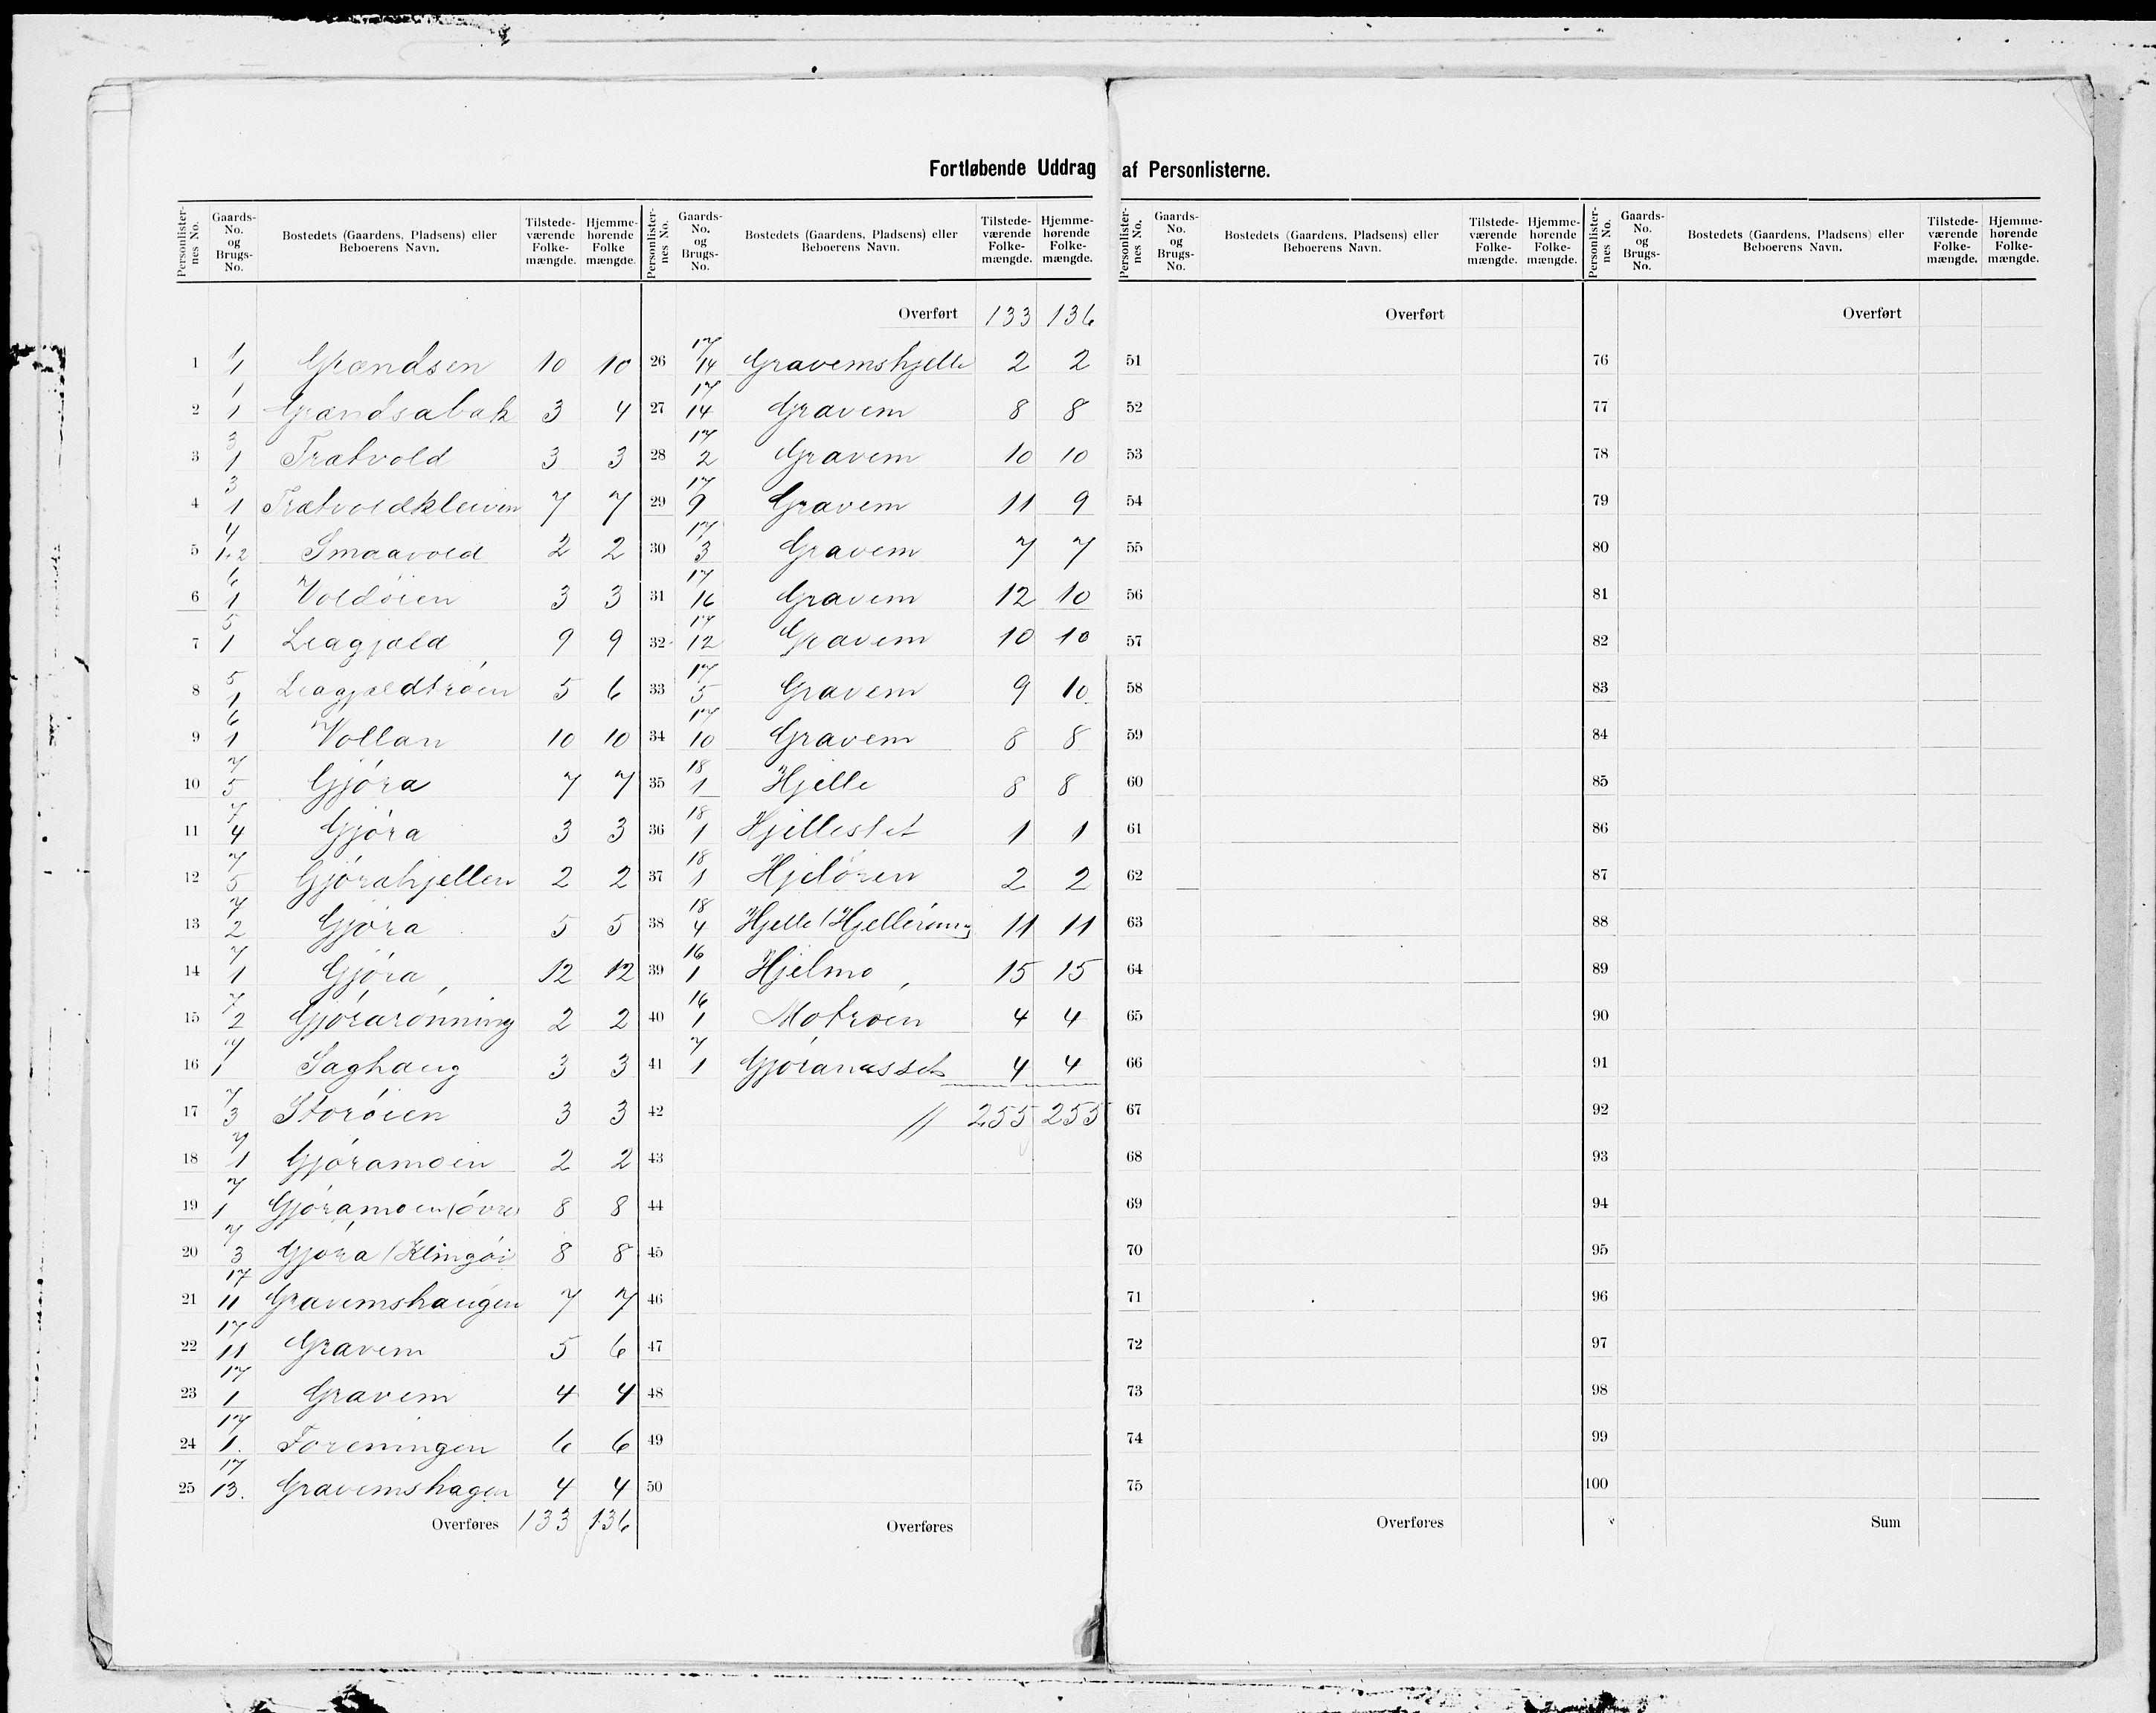 Fortløbende Uddrag af Personlisterne.
Personlister-nes No. | Gaards-No. og Brugs-No. | Bostedets (Gaardens, Pladsens) eller Beboerens Navn. | Tilstede-værende Folke-mængde. | Hjemme-hørende Folke mængde.
1 | 1/1 | Grændsen | 10 | 10
2 | 1/1 | Grændsabak | 3 | 4
3 | 3/1 | Trætvold | 3 | 3
4 | 3/1 | Trætvoldkleiven | 7 | 7
5 | 4/1.2 | Smaavold | 2 | 2
6 | 6/1 | Voldöien | 3 | 3
7 | 5/1 | Leagjæld | 9 | 9
8 | 5/1 | Leagjældtröen | 5 | 6
9 | 6/1 | Vollan | 10 | 10
10 | 7/5 | Gjöra | 7 | 7
11 | 7/4 | Gjöra | 3 | 3
12 | 7/5 | Gjörahjellen | 2 | 2
13 | 7/2 | Gjöra | 5 | 5
14 | 7/1 | Gjöra | 12 | 12
15 | 7/2 | Gjörarönning | 2 | 2
16 | 7/1 | Saghaug | 3 | 3
17 | 7/3 | Storöien | 3 | 3
18 | 7/1 | Gjöramoen | 2 | 2
19 | 7/1 | Gjöramoen (övre) | 8 | 8
20 | 7/3 | Gjöra (Klingöi) | 8 | 8
21 | 17/11 | Gravemshaugen | 7 | 7
22 | 17/11 | Gravem | 5 | 6
23 | 17/1 | Gravem | 4 | 4
24 | 17/1. | Foreningen | 6 | 6
25 | 17/13. | Gravemshagen | 4 | 4
Overføres | 133 | 136
Personlister-nes No. | Gaards-No. og Brugs-No. | Bostedets (Gaardens, Pladsens) eller Beboerens Navn. | Tilstede-værende Folke-mængde. | Hjemme-hørende Folke-mængde.
Overført | 133 | 136
26 | 17/14 | Gravemshjelle | 2 | 2
27 | 17/14 | Gravem | 8 | 8
28 | 17/2 | Gravem | 10 | 10
29 | 17/9 | Gravem | 11 | 9
30 | 17/3 | Gravem | 7 | 7
31 | 17/16 | Gravem | 12 | 10
32 | 17/12 | Gravem | 10 | 10
33 | 17/5 | Gravem | 9 | 10
34 | 17/10 | Gravem | 8 | 8
35 | 18/1 | Hjelle | 8 | 8
36 | 18/1 | Hjellestet | 1 | 1
37 | 18/1 | Hjelören | 2 | 2
38 | 18/4 | Hjelle (Hjelleröning) | 11 | 11
39 | 16/1 | Hjelmo | 15 | 15
40 | 16/1 | Motröen | 4 | 4
41 | 7/1 | Gjöranæsset | 4 | 4
42 | // | 255 | 255
43
44
45
46
47
48
49
50
Overføres
Personlister-nes No. | Gaards-No. og Brugs-No. | Bostedets (Gaardens, Pladsens) eller Beboerens Navn. | Tilstede-værende Folke-mængde. | Hjemme-hørende Folke-mængde.
Overført
51
52
53
54
55
56
57
58
59
60
61
62
63
64
65
66
67
68
69
70
71
72
73
74
75
Overføres
Personlister-nes No. | Gaards-No. og Brugs-No. | Bostedets (Gaardens, Pladsens) eller Beboerens Navn. | Tilstede-værende Folke-mængde. | Hjemme-hørende Folke-mængde.
Overført
76
77
78
79
80
81
82
83
84
85
86
87
88
89
90
91
92
93
94
95
96
97
98
99
100
Sum